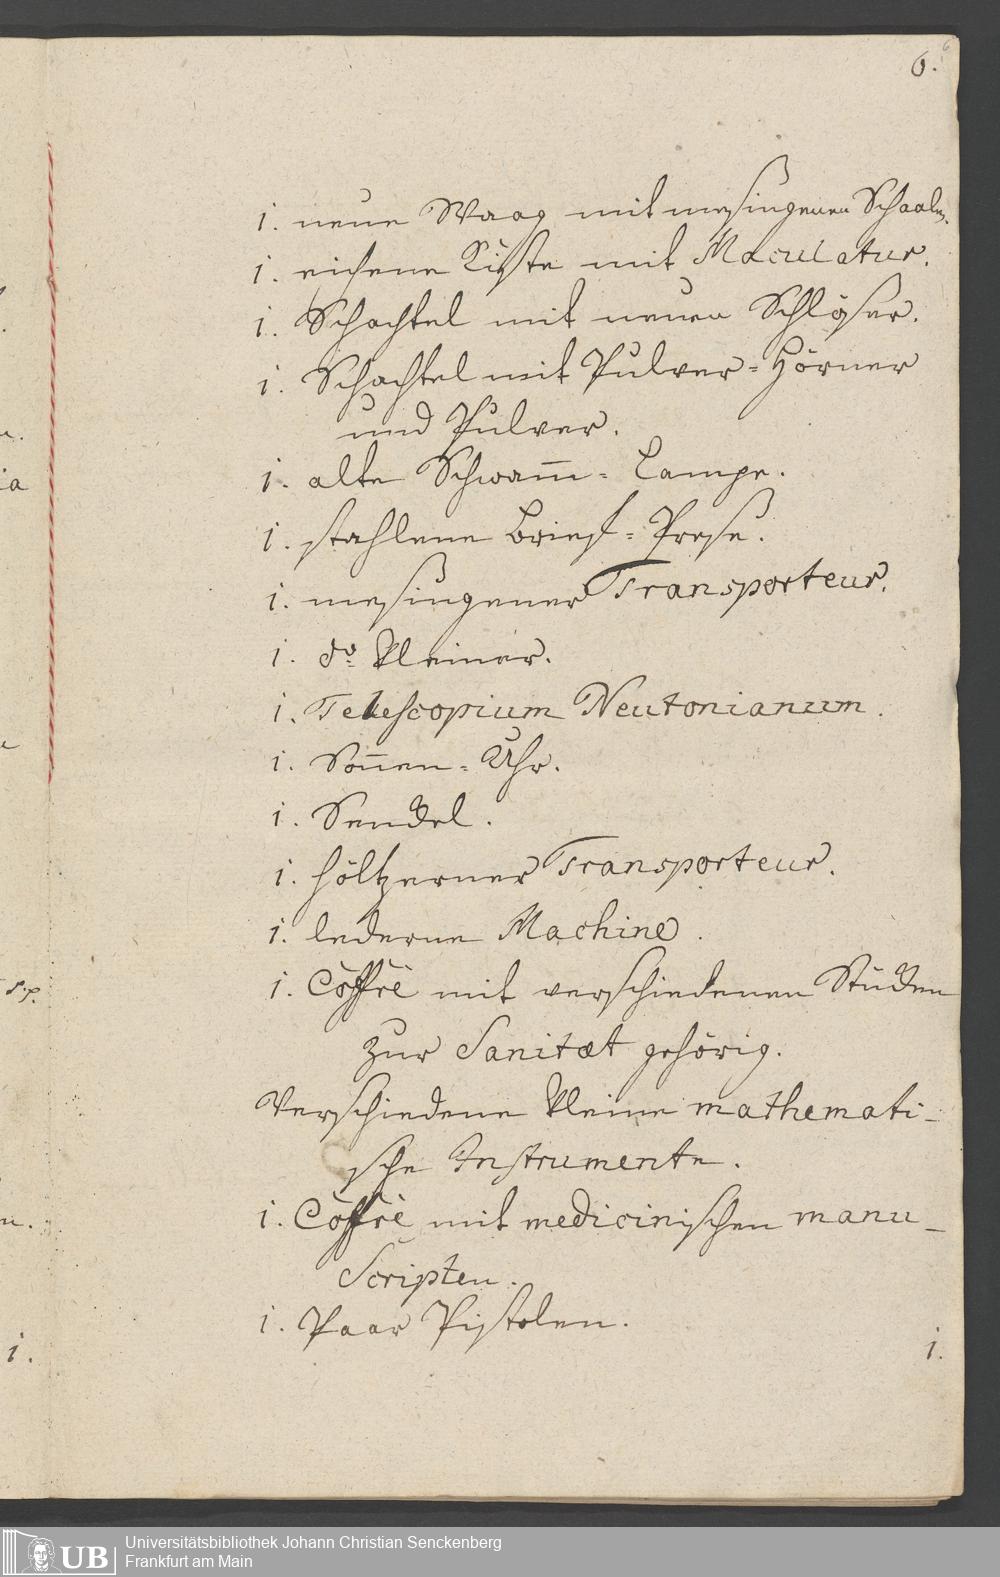 6.
1. neue Waag mit mesingenen Schaalen.
1. eichene Kiste mit Maculatur.
1. Schachtel mit neuen Schlößer.
1. Schachtel mit Pulver=Hörner
und Pulver.
1. alte Schwam̅=Lampe.
1. stahlene Brief=Prese.
1. mesingener Transporteur.
1. do. kleiner.
1. Telescopium Neutonianum.
1. Son̅en=Uhr.
1. Senckel.
1. höltzerner Transporteur.
1. lederne Machine.
1. Coffre mit verschiedenen Stücken
zur Sanitæt gehörig.
Verschiedene kleine mathemati-
sche Instrumente.
1. Coffre mit medicinischen manu-
Scripten.
1. Paar Pistolen.
1.
1.
UB
Universitätsbibliothek Johann Christian Senckenberg
Frankfurt am Main